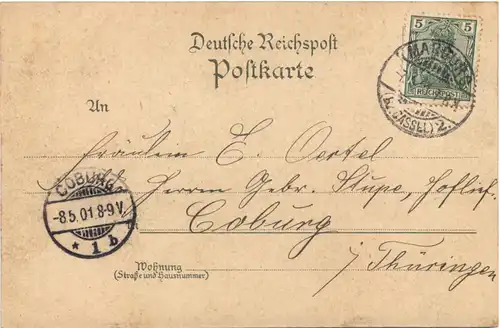 Deutsche Reichspost
Postkarte
5 5
REICHSPOST
MARBURG
(BZ. CASSEL) 2.
An
Fräulein E. Oertel
Herrn Gebr. Stupe, Hoflief.
in Coburg
i/ Thüringen
COBURG
-8.5.01.8-9V.
* 1 b
Wohnung
(Straße und Hausnummer)